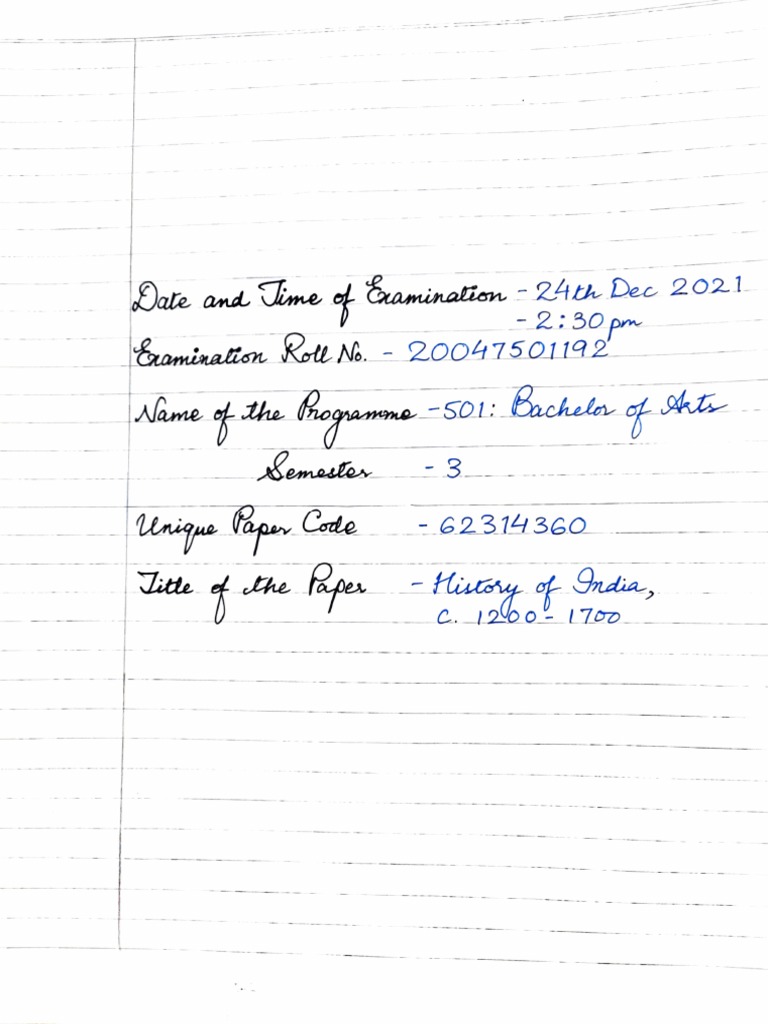 Date and Time of Examination - 24th Dec 2021
- 2:30 pm
Examination Roll No. - 20047501192
Name of the Programme - 501: Bachelor of Arts
Semester - 3
Unique Paper Code - 62314360
Title of the Paper - History of India,
c. 1200 - 1700